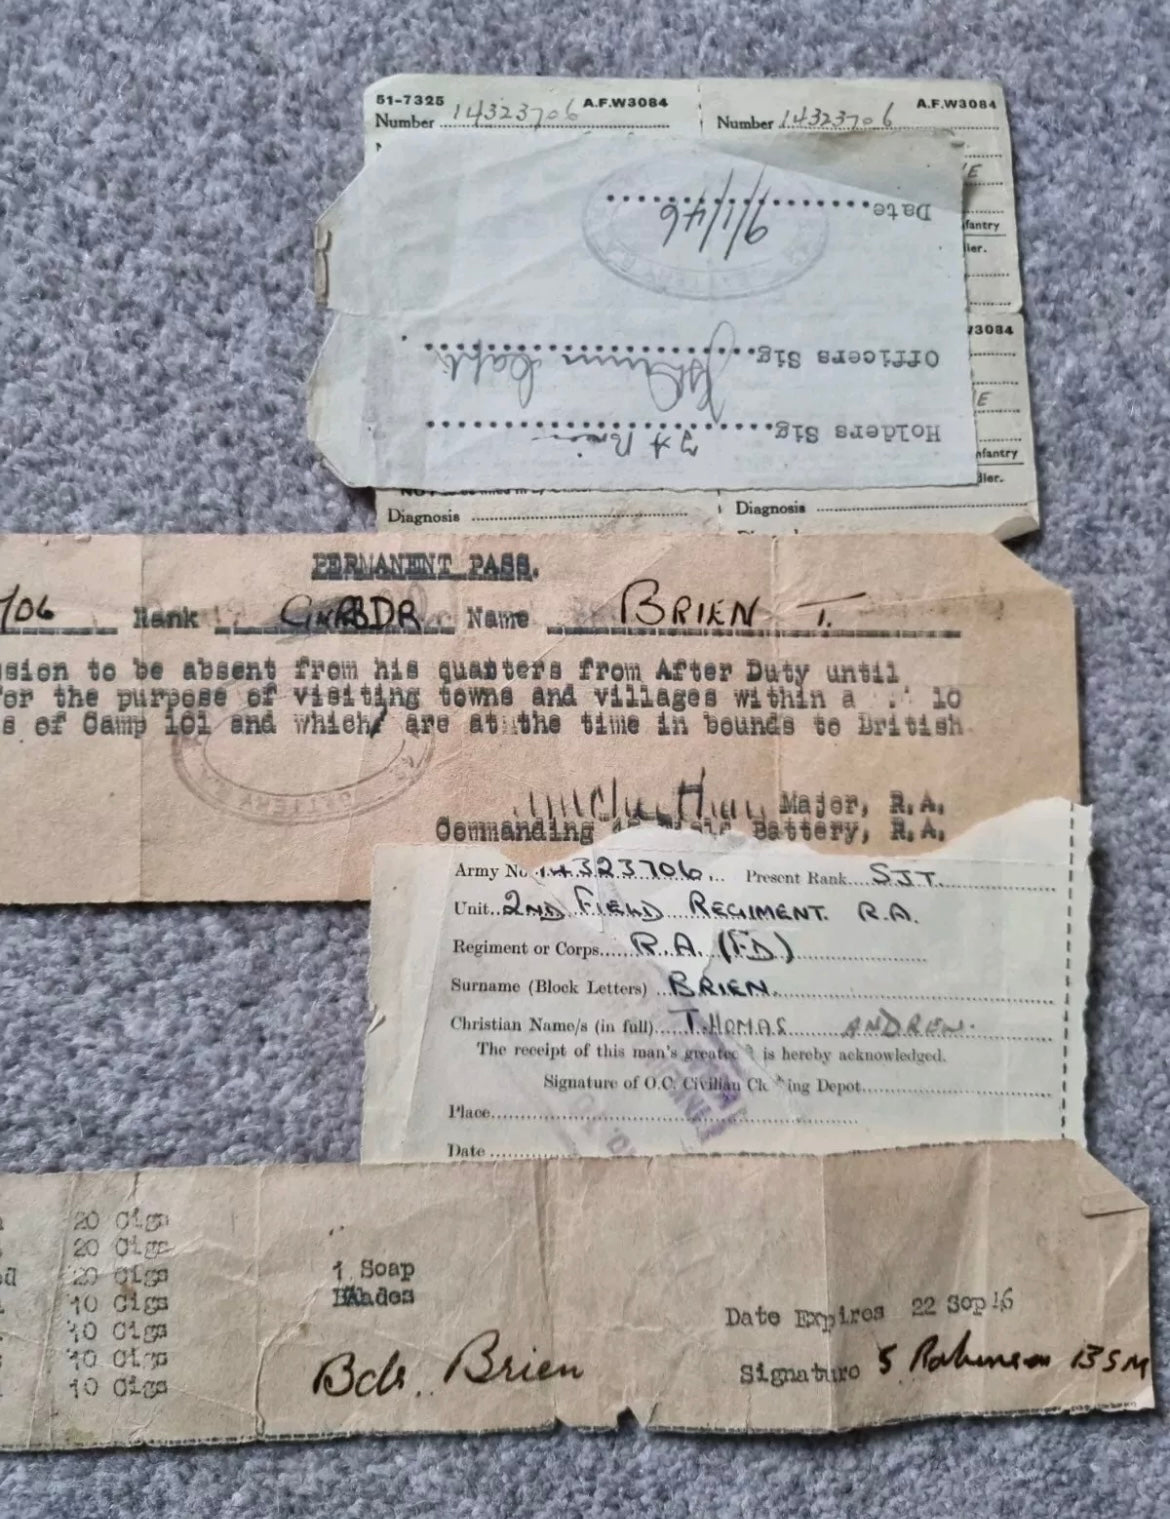 51-7325 A.F.W3084 A.F.W3084
Number 14323706 Number 14323706
Date 9/1/46
fantry
ier.
W3084
Officers Sig Capt
E
Holders Sig T A Brien
nfantry
lier.
Diagnosis Diagnosis
PERMANENT PASS.
706 Rank GNR BDR Name BRIEN T.
ssion to be absent from his quarters from After Duty until
for the purpose of visiting towns and villages within a 10
s of Camp 101 and which are at the time in bounds to British
Major, R.A.
Commanding Field Battery, R.A.
Army No 14323706 Present Rank SJT.
Unit 2ND FIELD REGIMENT. R.A.
Regiment or Corps R.A. (FD)
Surname (Block Letters) BRIEN.
Christian Name/s (in full) THOMAS ANDREW.
The receipt of this man's greatcoat is hereby acknowledged.
Signature of O.C. Civilian Clothing Depot
Place
Date
20 Cigs
20 Cigs
20 Cigs 1 Soap
10 Cigs Blades
10 Cigs Date Expires 22 Sep 46
10 Cigs Bdr. Brien Signature S Robinson BSM
10 Cigs